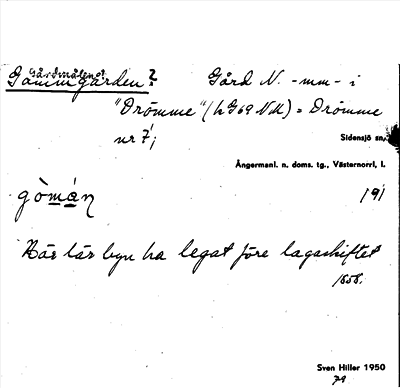 Gårdmålenot
Gammgården? Gård N. -mm- i
"Drömme" (h G69 NM) = Drömme
nr 7;
Sidensjö sn,
Ångermanl. n. doms. tg., Västernorrl. l.
gòmán 191
Här lär byn ha legat före lagaskiftet
1858.
Sven Hiller 1950